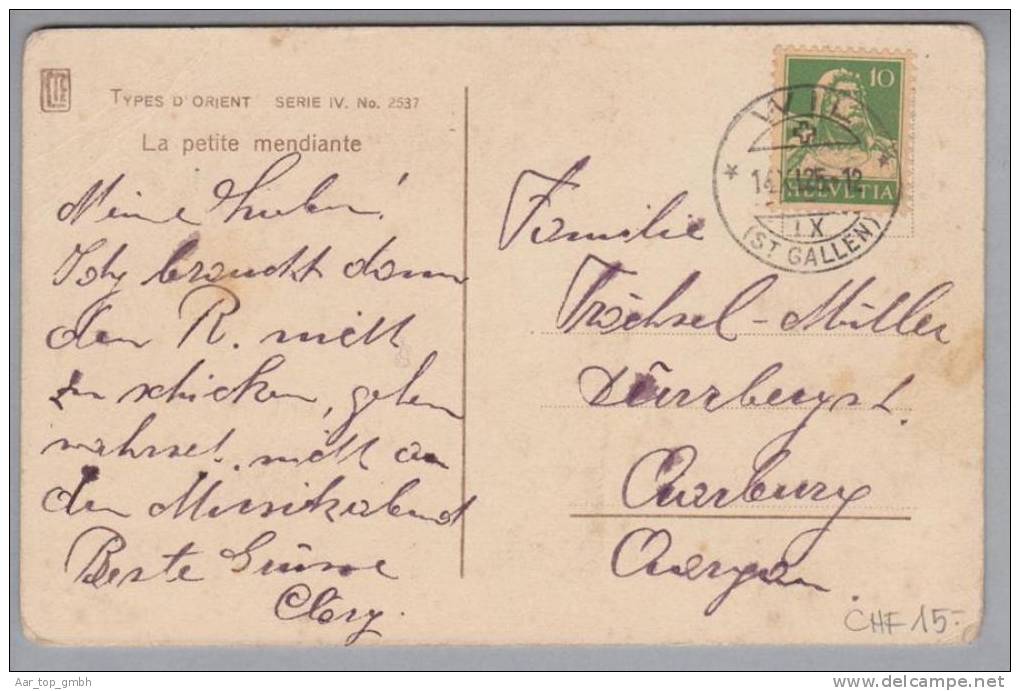 TYPES D'ORIENT SERIE IV. No. 2537
La petite mendiante
Meine Lieben!
Ihr braucht dann
den R. nicht
zu schicken, gehen
wahrsch. nicht an
den Musikabend
Beste Grüsse
Clary.
10
HELVETIA
WIL
IX
(ST GALLEN)
Familie
Tröchsel-Müller
Dürrbergst.
Aarburg
Aargau.
CHF 15.-
Aar_top_gmbh
www.delcampe.net